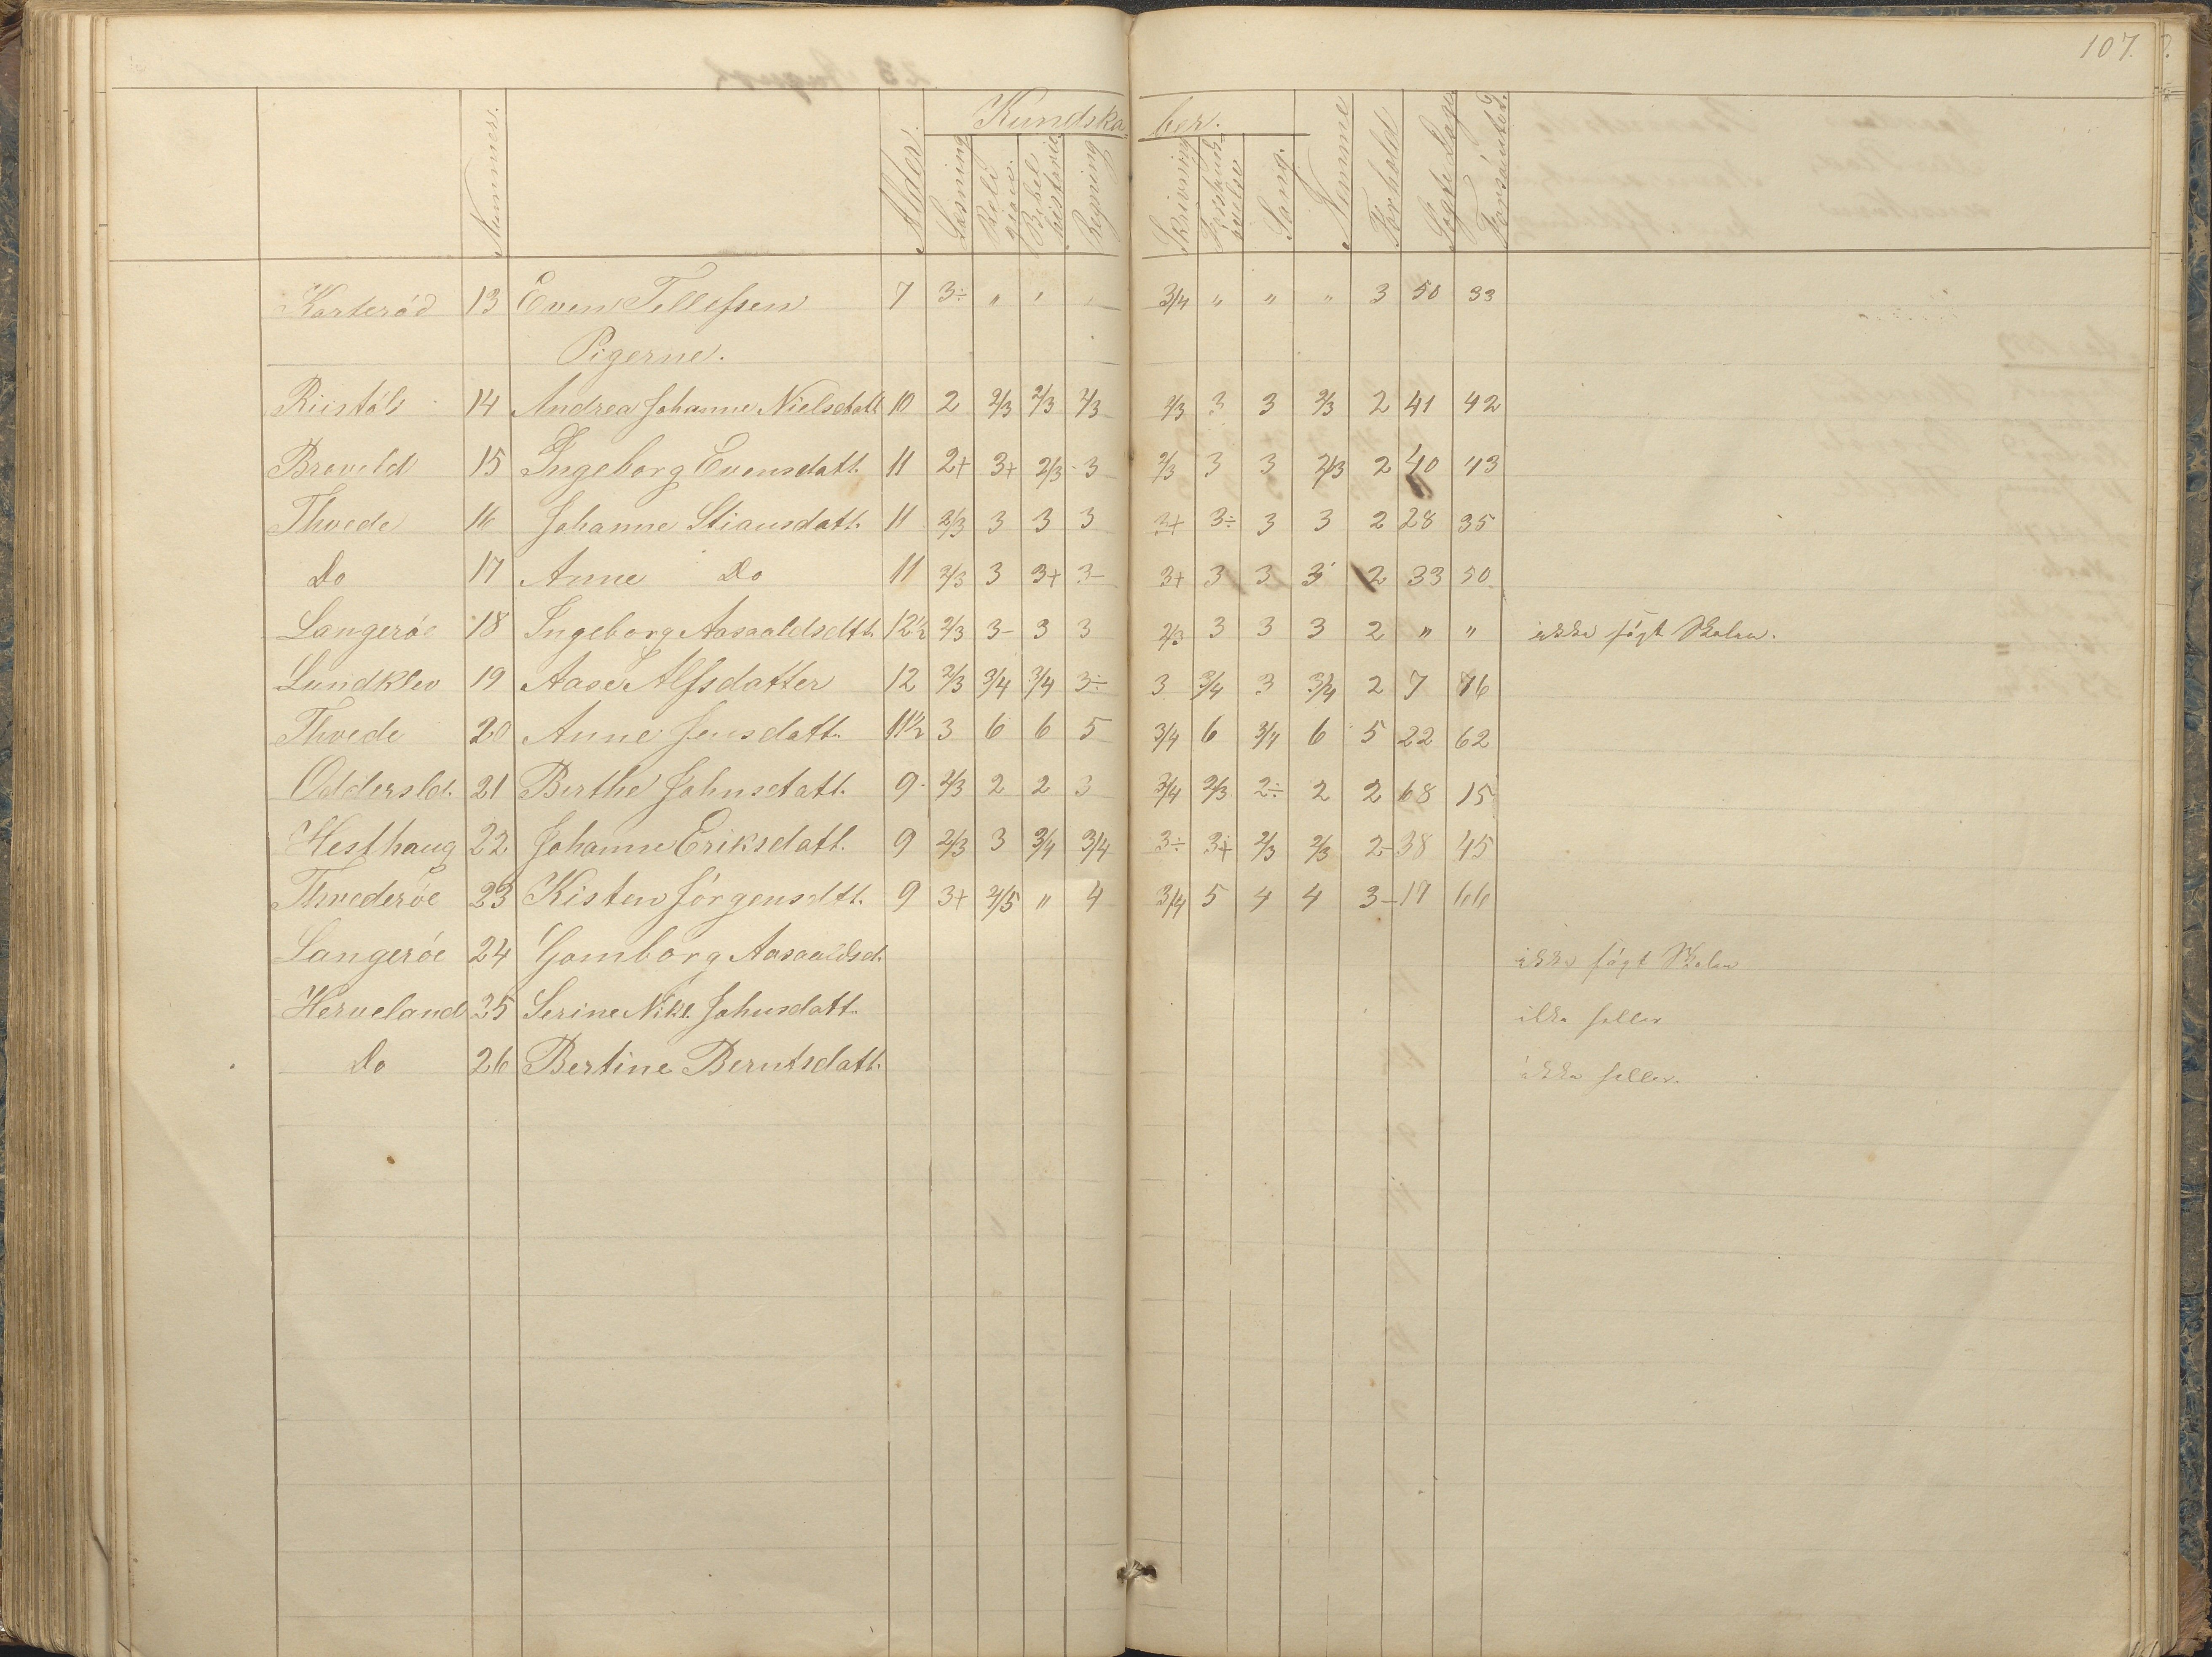 107.
Nummer. Alder. Kundskaber. Læsning Religion. Bibelhistorie. Regning Skrivning Sang. Nemme Forhold Søgte Dage Forsømte d.
Karterød 13 Even Tellefsen 7 3÷ " " " 3/4 " " " 3 50 33
Pigerne.
14 Andrea Johanne Nielsdatt 10 2 2/3 2/3 2/3 2/3 3 3 2/3 2 41 42
Braveld 15 Ingeborg Evensdatt. 11 2+ 3+ 2/3 3 2/3 3 3 2/3 2 40 43
Thvede 16 Johanne Stiansdatt. 11 2/3 3 3 3 3+ 3÷ 3 3 2 28 35
Do 17 Anne Do 11 2/3 3 3+ 3- 3+ 3 3 3 2 33 50
Langerøe 18 Ingeborg Aasvaldsdtt. 12½ 2/3 3- 3 3 2/3 3 3 3 2 " " ikke søgt Skolen.
Lundklev 19 Aase Alfsdatter 12 2/3 3/4 3/4 3÷ 3 3/4 3 3/4 2 7 76
Thvede 20 Anne Jensdatt. 11½ 3 6 6 5 3/4 6 3/4 6 5 22 62
Oddersld. 21 Berthe Johnsdatt. 9 2/3 2 2 3 3/4 2/3 2÷ 2 2 68 15
Hesthaug 22 Johanne Eriksdatt. 9 2/3 3 3/4 3/4 3÷ 3+ 2/3 2/3 2- 38 45
Thvederøe 23 Kisten Jørgensdtt. 9 3+ 4/5 " 4 3/4 5 4 4 3- 17 66
Langerøe 24 Gomborg Aasvaldsd. ikke søgt Skolen
Herveland 25 Serine Nikl. Johnsdatt. ikke heller
Do 26 Bertine Berntsdatt. ikke heller.